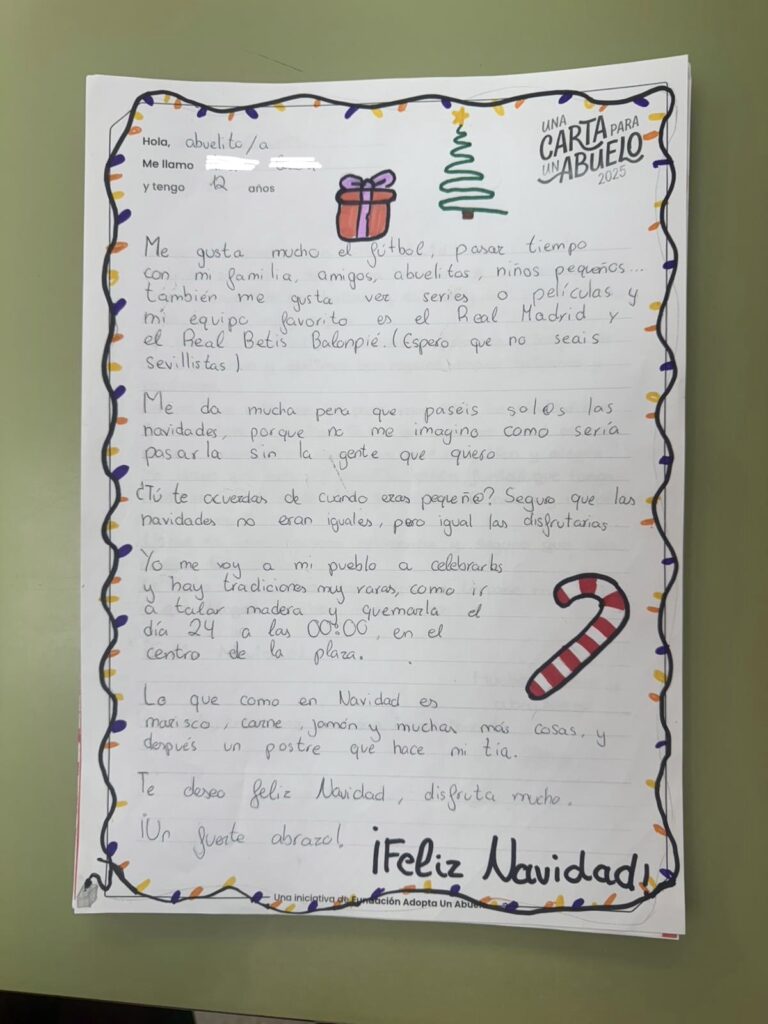 UNA
CARTA PARA
UN ABUELO
2025
Hola, abuelito/a
Me llamo
y tengo 12 años
Me gusta mucho el fútbol, pasar tiempo
con mi familia, amigos, abuelitos, niños pequeños...
también me gusta ver series o películas y
mi equipo favorito es el Real Madrid y
el Real Betis Balonpié. (Espero que no seais
sevillistas)
Me da mucha pena que paseis sol@s las
navidades, porque no me imagino como sería
pasarla sin la gente que quiero
¿Tú te acuerdas de cuando eras pequeñ@? Seguro que las
navidades no eran iguales, pero igual las disfrutarias
Yo me voy a mi pueblo a celebrarlas
y hay tradiciones muy raras, como ir
a talar madera y quemarla el
día 24 a las 00:00, en el
centro de la plaza.
Lo que como en Navidad es
marisco, carne, jamón y muchas más cosas, y
después un postre que hace mi tía.
Te deseo feliz Navidad, disfruta mucho.
¡Un fuerte abrazo!
¡Feliz Navidad!
Una iniciativa de Fundación Adopta Un Abuelo